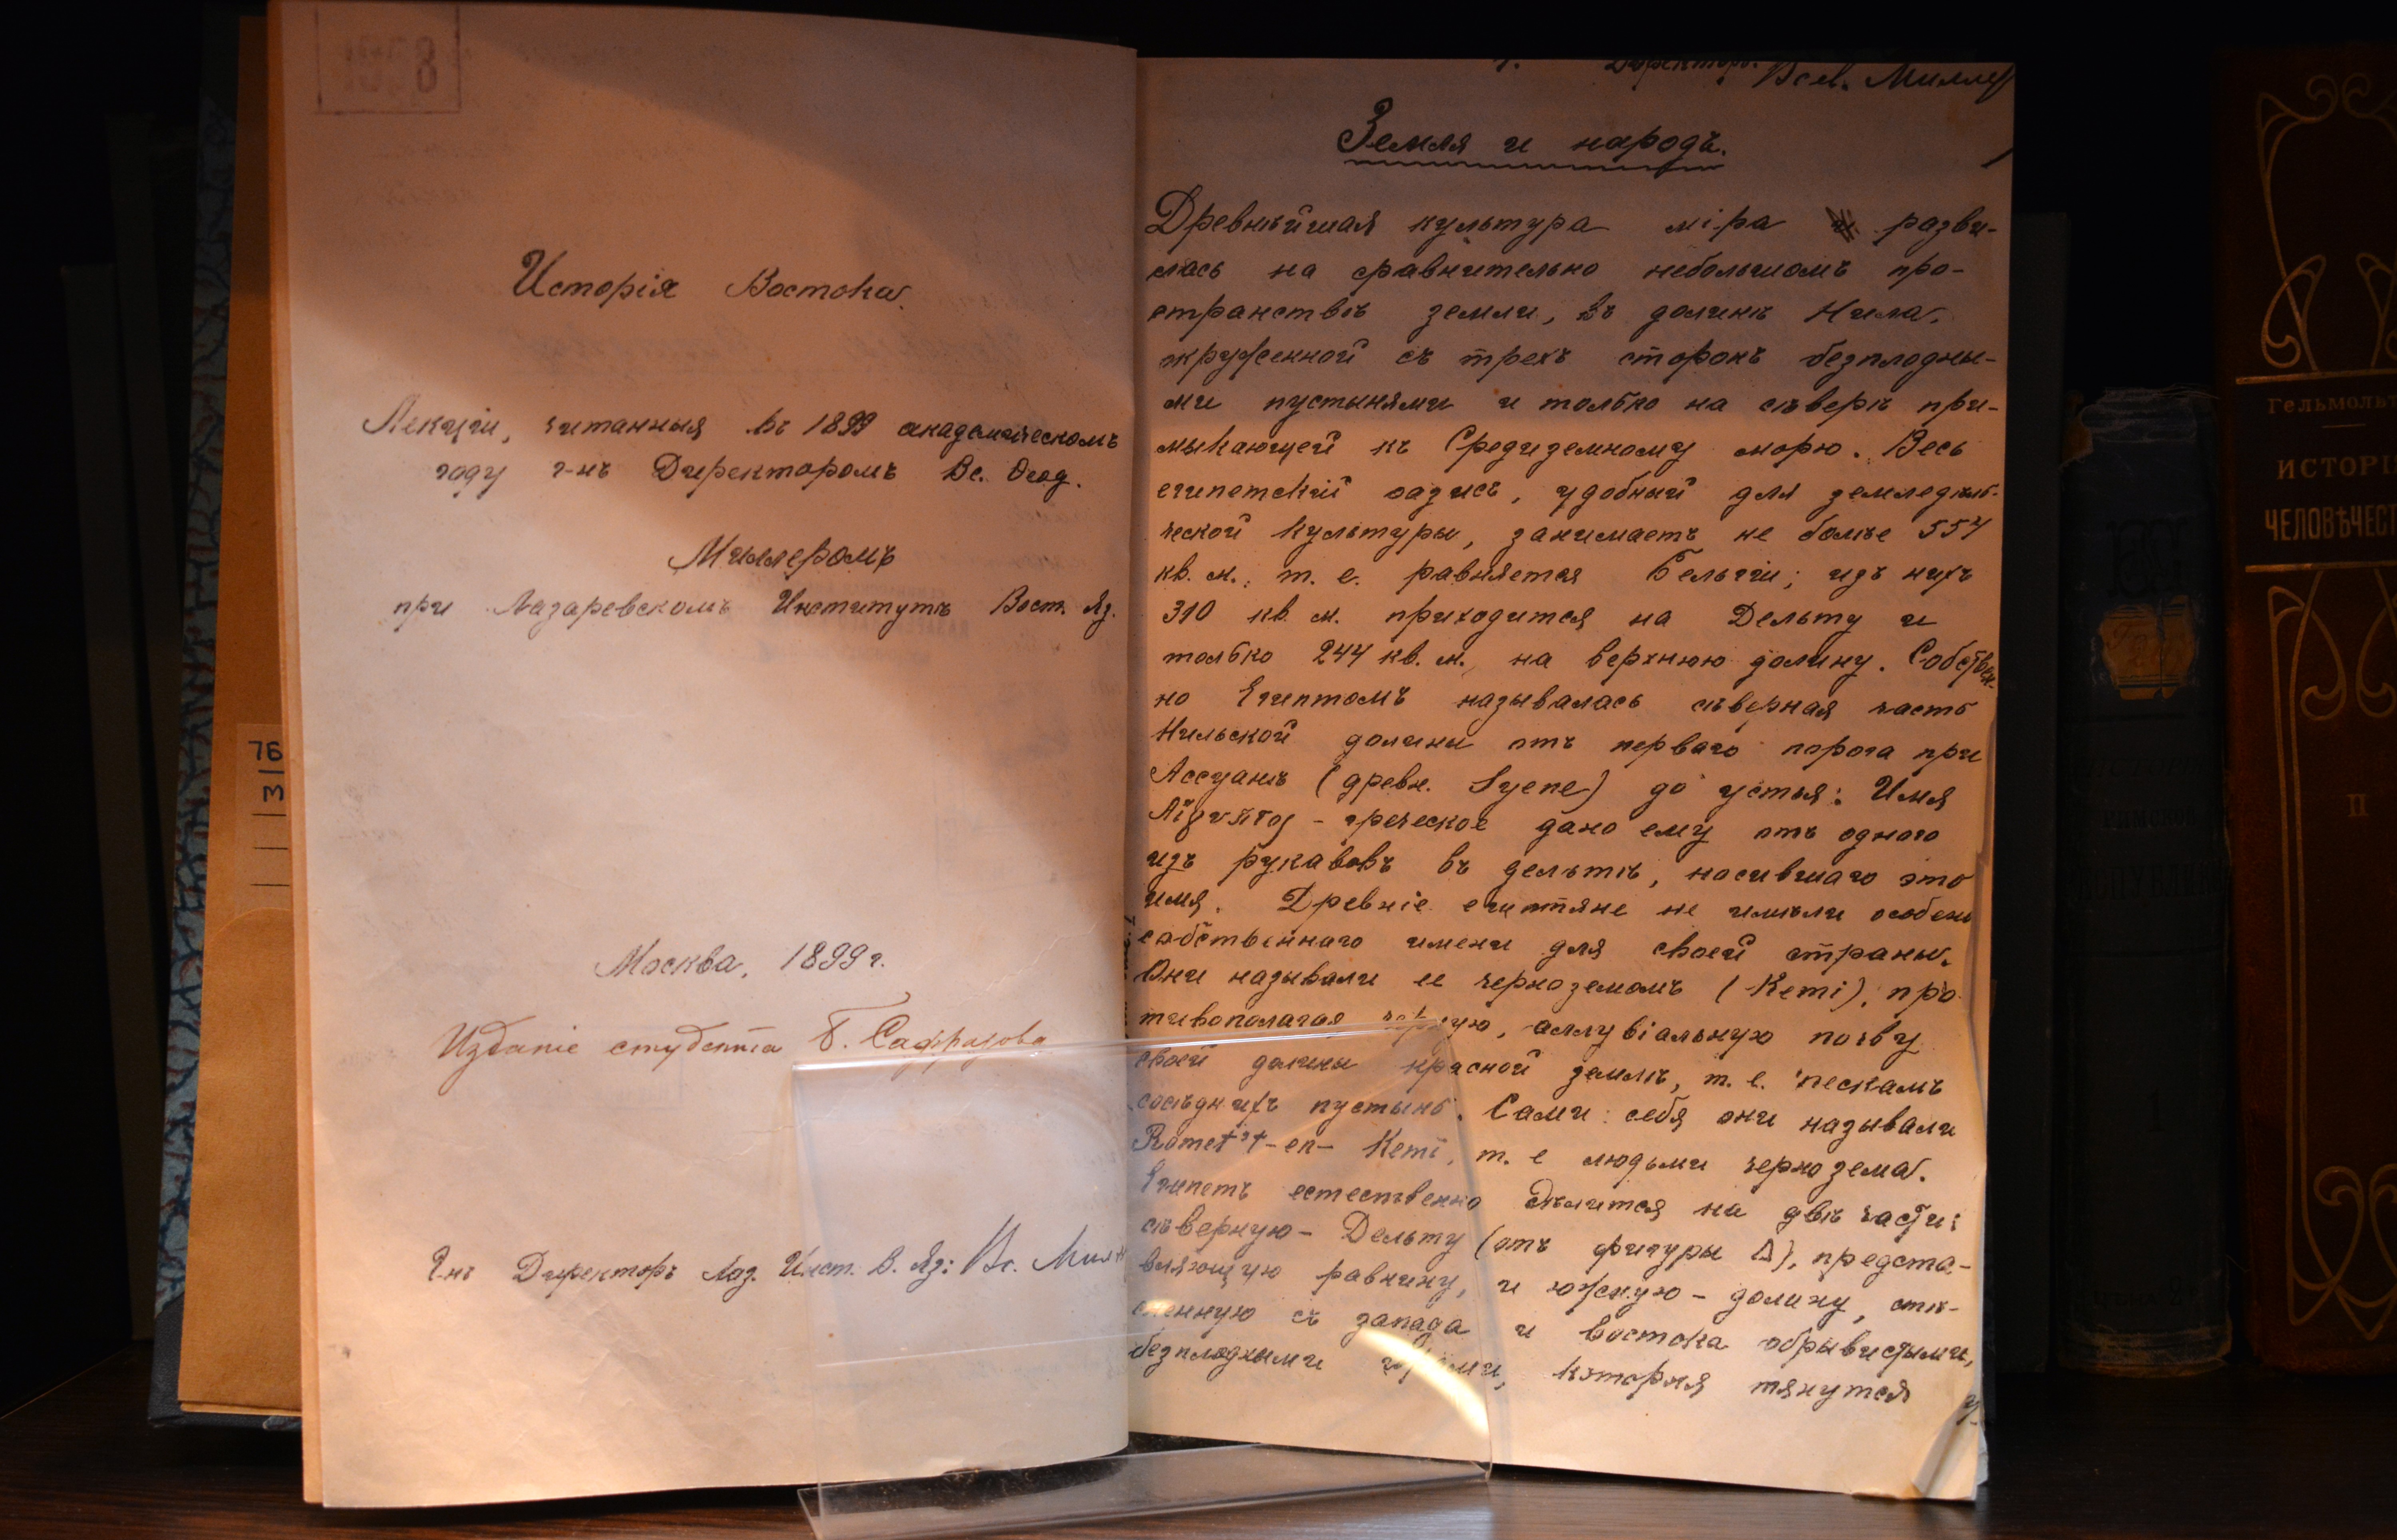 Исторія Востока.
Лекціи, читанныя въ 1899 академическомъ
году г-нъ Директоромъ Вс. Ѳеод.
Миллеромъ
при Лазаревскомъ Институтѣ Вост. Яз.
Москва, 1899 г.
Изданіе студента Б. Сафразова
Г-нъ Директоръ Лаз. Инст. В. Яз: Вс. Милл
76
3
Директоръ. Всев. Миллер
Земля и народъ.
Древнѣйшая культура міра разви-
лась на сравнительно небольшомъ про-
странствѣ земли, въ долинѣ Нила,
окруженной съ трехъ сторонъ безплодны-
ми пустынями и только на сѣверѣ при-
мыкающей къ Средиземному морю. Весь
египетскій оазисъ, удобный для земледѣль-
ческой культуры, занимаетъ не болѣе 554
кв. м., т. е. равняется Бельгіи; изъ нихъ
310 кв. м. приходится на Дельту и
только 244 кв. м. на верхнюю долину. Собствен-
но Египтомъ называлась сѣверная часть
Нильской долины отъ перваго порога при
Ассуанѣ (древн. Syene) до устья: Имя
Αἴγυπτος - греческое дано ему отъ одного
изъ рукавовъ въ дельтѣ, носившаго это
имя. Древніе египтяне не имѣли особен
собственнаго имени для своей страны.
Они называли ее черноземомъ (Kemi), про
тивополагая черную, аллувіальную почву
своей долины красной землѣ, т. е. пескамъ
сосѣднихъ пустынь. Сами себя они называли
-en- Kemi, т. е людьми чернозема.
Египетъ естественно дѣлится на двѣ части:
сѣверную - Дельту (отъ фигуры Δ), предста-
вляющую равнину, и южную - долину, стѣ-
сненную съ запада и востока обрывистыми,
безплодными горами, которыя тянутся
Гельмольт
ИСТОРІ
ЧЕЛОВѢЧЕС
II
1